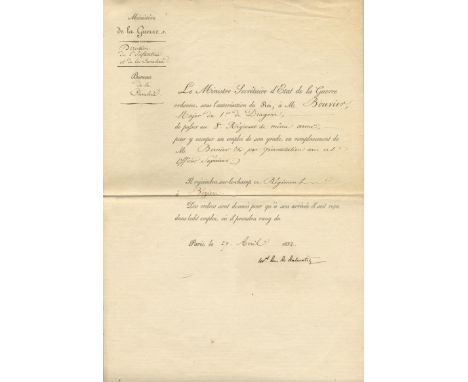 Ministère
de la Guerre.
Direction
de l'Infanterie
et de la Cavalerie
Bureau
de la
Cavalerie
Le Ministre Secrétaire d'Etat de la Guerre
ordonne, sous l'autorisation du Roi, à M. Bouvier,
Major du 1er de Dragons,
de passer au 8e Régiment de même arme,
pour y occuper un emploi de son grade, en remplacement de
M. Bernier par permutation avec cet
Officier Supérieur
Il rejoindra sur-le-champ ce Régiment
à Béziers
Des ordres sont donnés pour qu'à son arrivée il soit reçu
dans ledit emploi, où il prendra rang du
Paris, le 27 Avril 1832.
Mal Duc de Dalmatie